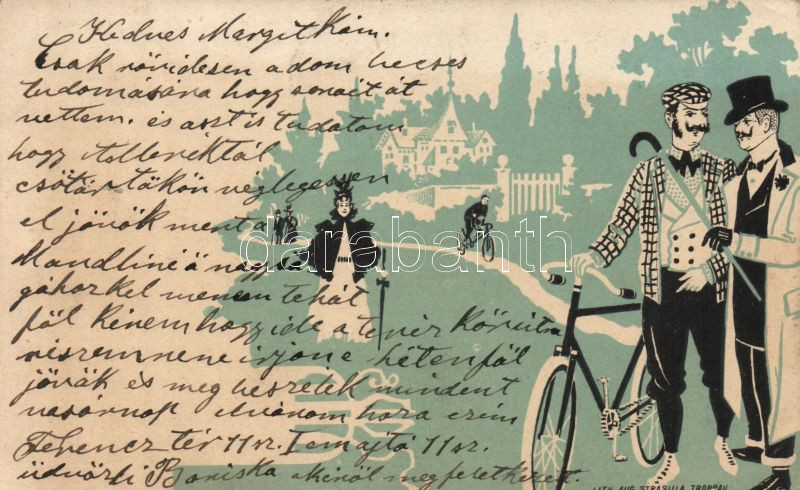 Kedves Margitkám.
Csak röviden adom becses
tudomására hogy sorait át
vettem. és aszt is tudatom
hogy
csötörtökön véglegessen
el jövök mert a
Mandliné á nagy
gá menem tehát
föl kérem hogy ide a terér körutra
ne irjon e héten föl
jövök és meg beszélek mindent
vasárnap elvárom hozzam
Ferencz tér 11 sz. I emajtó 11 sz.
üdvözli Boriska akiröl megfeletkezett.
darabanth
LITH. AUG. STRASILLA TROPPAU